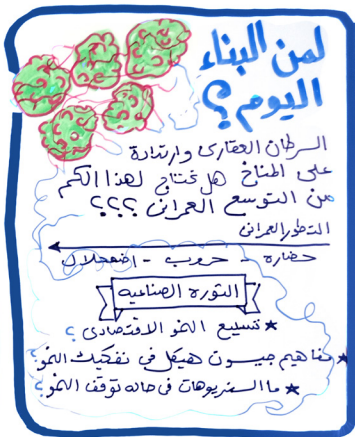 لمن البناء
اليوم؟
السرطان العقارى وارتداده
على المناخ هل نحتاج لهذا الكم
من التوسع العمرانى ؟؟؟
التطور العمرانى
حضاره - حروب - اضمحلال
الثوره الصناعيه
★ تسليع النمو الاقتصادى؟
★ مفاهيم جيسون هيكل فى تفكيك النمو؟
★ ما السنريوهات فى حاله توقف النمو؟